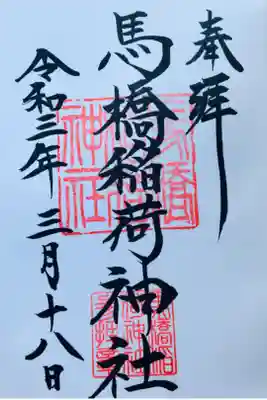 奉拝
馬橋稲荷神社
令和三年 三月十八日